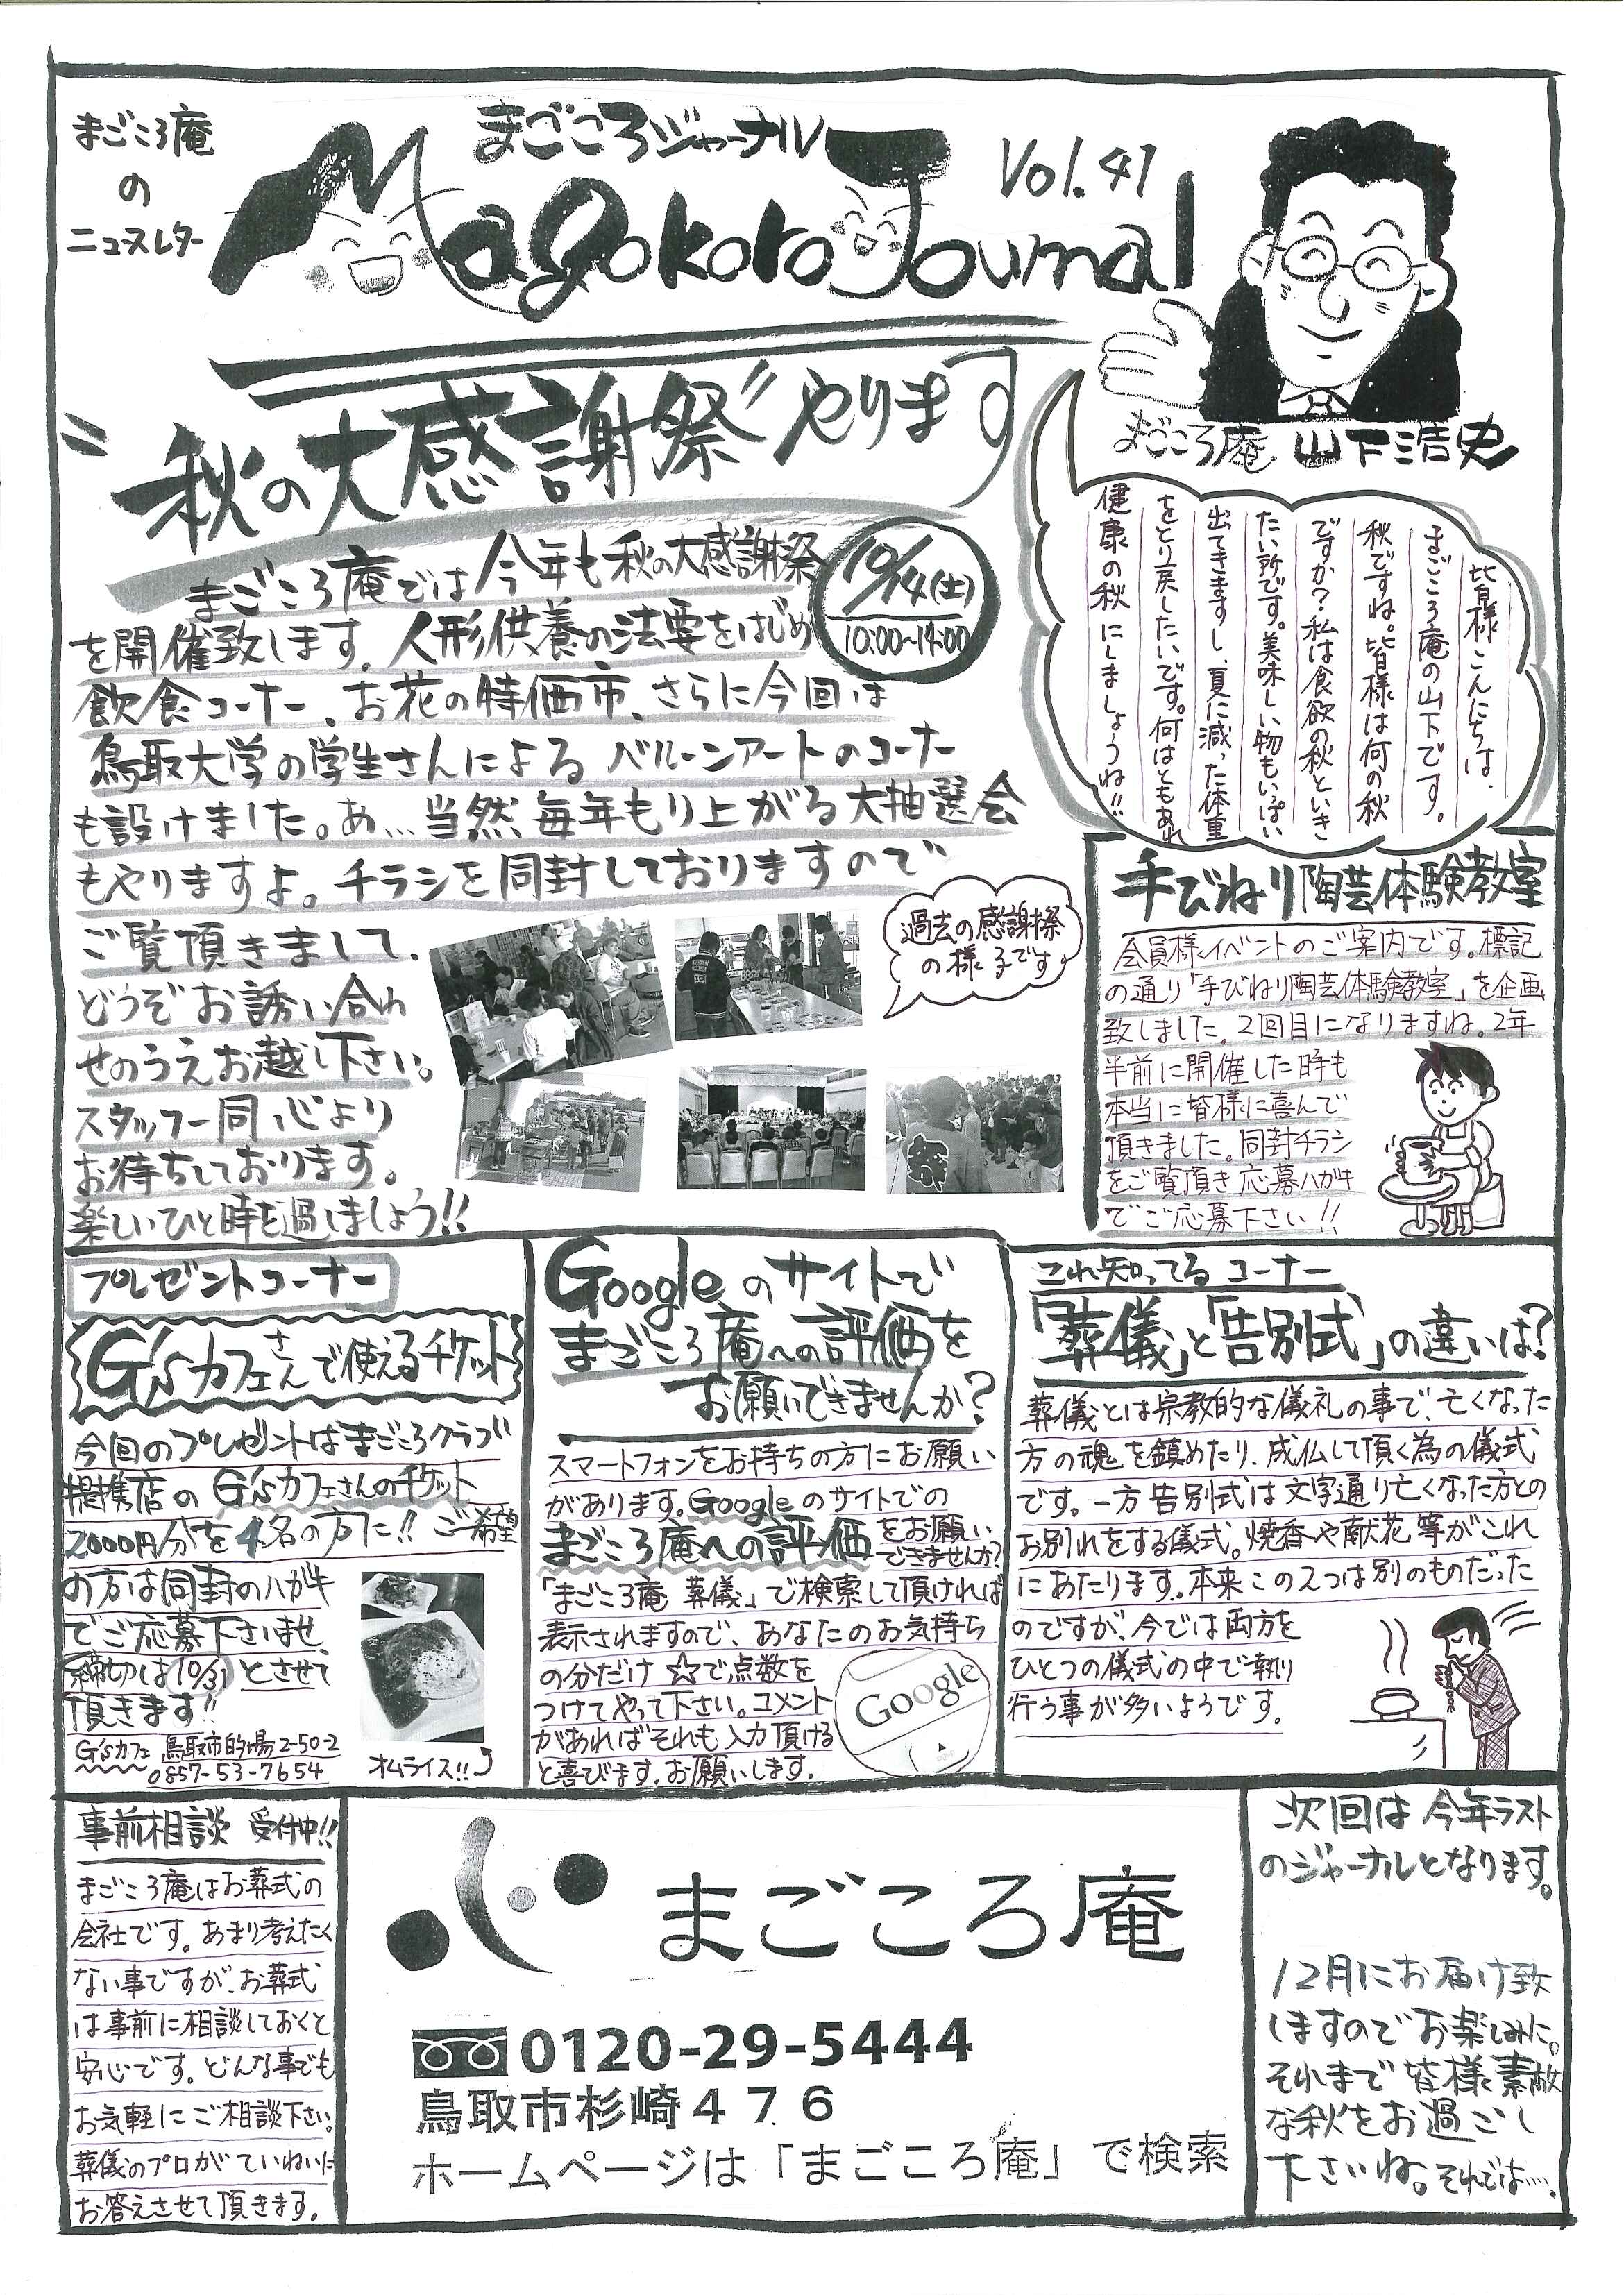 まごころ庵
の
ニュースレター
まごころジャーナル
Magokoro Journal
Vol.41
まごころ庵 山下浩史
皆様こんにちは.
まごころ庵の山下です。
秋ですね。皆様は何の秋
ですか?私は食欲の秋といき
たい所です。美味しい物もいっぱい
出てきますし、夏に減った体重
をとり戻したいです。何はともあれ
健康の秋にしましょうね!!
"秋の大感謝祭"やります
10/14(土)
10:00~14:00
まごころ庵では今年も秋の大感謝祭
を開催致します。人形供養の法要をはじめ
飲食コーナー、お花の特価市、さらに今回は
鳥取大学の学生さんによる バルーンアートのコーナー
も設けました。あ…当然、毎年もり上がる大抽選会
もやりますよ。チラシを同封しておりますので
ご覧頂きまして、
どうぞお誘い合わ
せのうえお越し下さい。
スタッフ一同 心より
お待ちしております。
楽しいひと時を過しましょう!!
過去の感謝祭
の様子です
手びねり陶芸体験教室
会員様イベントのご案内です。標記
の通り「手びねり陶芸体験教室」を企画
致しました。2回目になりますね。2年
半前に開催した時も
本当に皆様に喜んで
頂きました。同封チラシ
をご覧頂き応募ハガキ
でご応募下さい!!
プレゼントコーナー
G'sカフェさんで使えるチケット
今回のプレゼントはまごころクラブ
提携店の G'sカフェさんのチケット
2000円分を4名の方に!! ご希望
の方は同封のハガキ
でご応募下さいませ
締切は10/31とさせて
頂きます!!
G'sカフェ 鳥取市的場2-50-2
0857-53-7654
オムライス!!
Googleのサイトで
まごころ庵への評価を
お願いできませんか?
スマートフォンをお持ちの方にお願い
があります。Googleのサイトでの
まごころ庵への評価をお願い
できませんか?
「まごころ庵 葬儀」で検索して頂ければ
表示されますので、あなたのお気持ち
の分だけ☆で点数を
つけてやって下さい。コメント
があればそれも入力頂ける
と喜びます。お願いします。
Google
これ知ってるコーナー
「葬儀」と「告別式」の違いは?
葬儀とは宗教的な儀礼の事で、亡くなった
方の魂を鎮めたり、成仏して頂く為の儀式
です。一方告別式は文字通り亡くなった方との
お別れをする儀式。焼香や献花等がこれ
にあたります。本来この2つは別のものだった
のですが、今では両方を
ひとつの儀式の中で執り
行う事が多いようです。
事前相談 受付中!!
まごころ庵はお葬式の
会社です。あまり考えたく
ない事ですが、お葬式
は事前に相談しておくと
安心です。どんな事でも
お気軽にご相談下さい。
葬儀のプロがていねいに
お答えさせて頂きます。
まごころ庵
0120-29-5444
鳥取市杉崎476
ホームページは「まごころ庵」で検索
次回は今年ラスト
のジャーナルとなります。
12月にお届け致
しますのでお楽しみに。
それまで皆様素敵
な秋をお過ごし
下さいね。それでは….